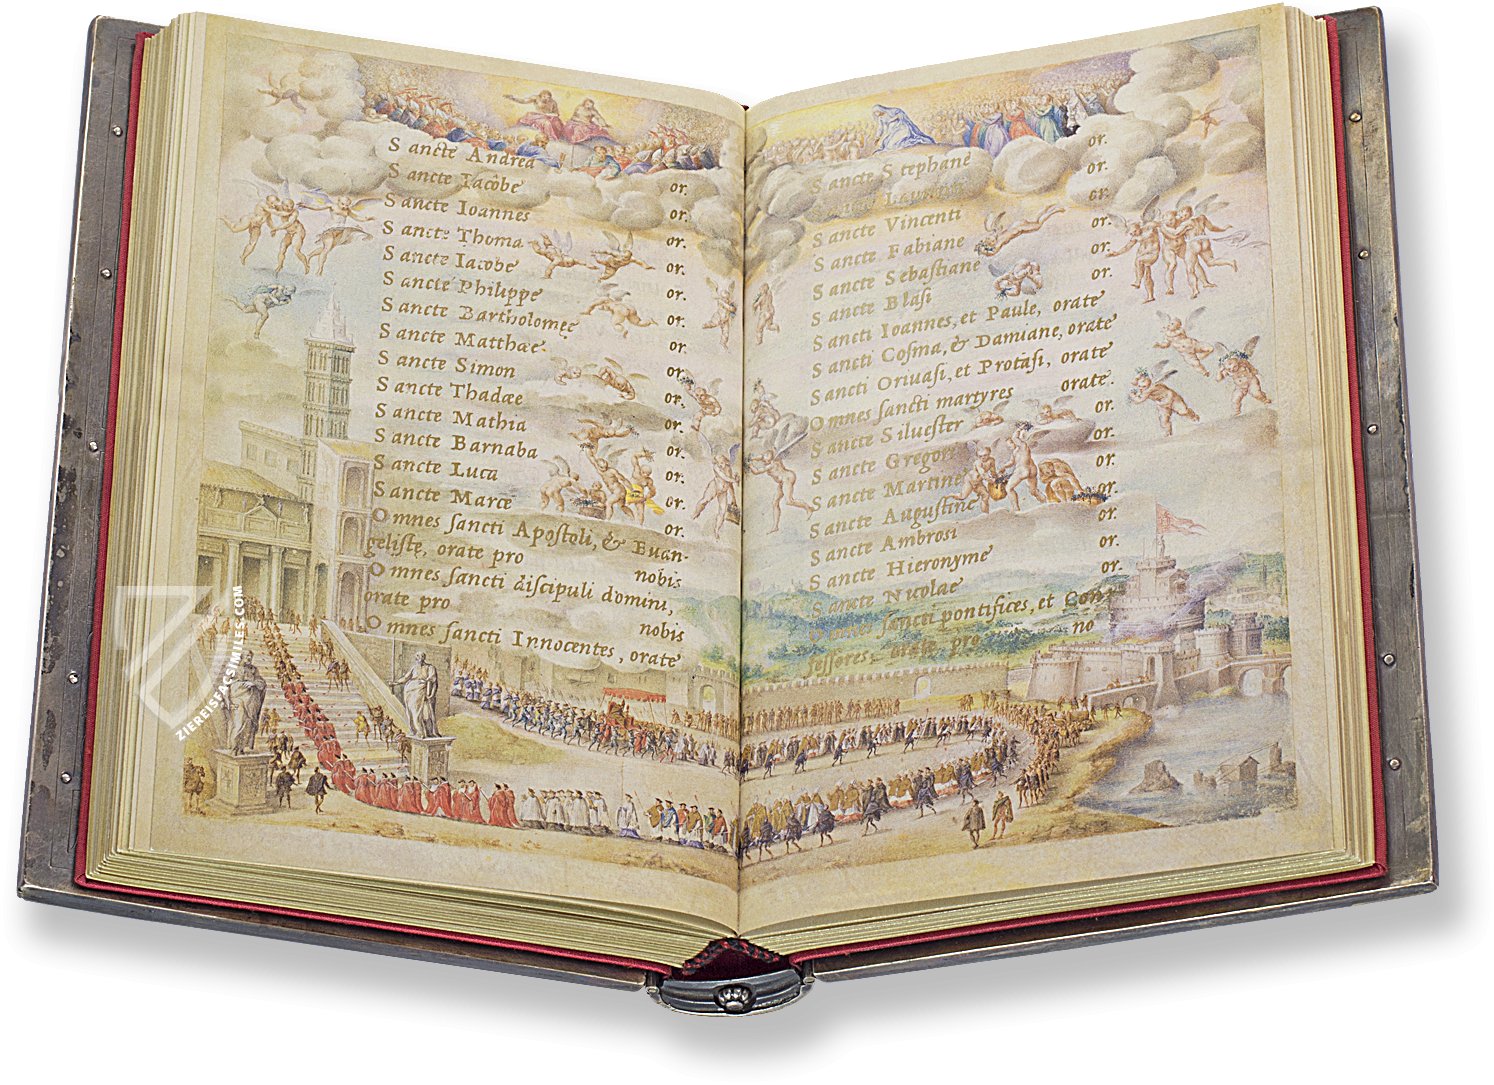 Sancte Andrea or.
Sancte Iacobe or.
Sancte Ioannes or.
Sancte Thoma or.
Sancte Iacobe or.
Sancte Philippe or.
Sancte Bartholomęe or.
Sancte Matthæe or.
Sancte Simon or.
Sancte Thadæe or.
Sancte Mathia or.
Sancte Barnaba or.
Sancte Luca or.
Sancte Marce or.
Omnes sancti Apostoli, & Euan-
gelistę, orate pro nobis
Omnes sancti discipuli domini,
orate pro nobis
Omnes sancti Innocentes, orate
Sancte Stephane or.
Sancte or.
Sancte Vincenti or.
Sancte Fabiane or.
Sancte Sebastiane or.
Sancte Blasi or.
Sancti Ioannes, et Paule, orate
Sancti Cosma, & Damiane, orate
Sancti Oriuasi, et Protasi, orate
Omnes sancti martyres orate.
Sancte Siluester or.
Sancte Gregori or.
Sancte Martine or.
Sancte Augustine or.
Sancte Ambrosi or.
Sancte Hieronyme or.
Sancte Nicolae or.
Omnes sancti pontifices, et Con
fessores, orate pro no
ZIEREIS-FACSIMILES.COM